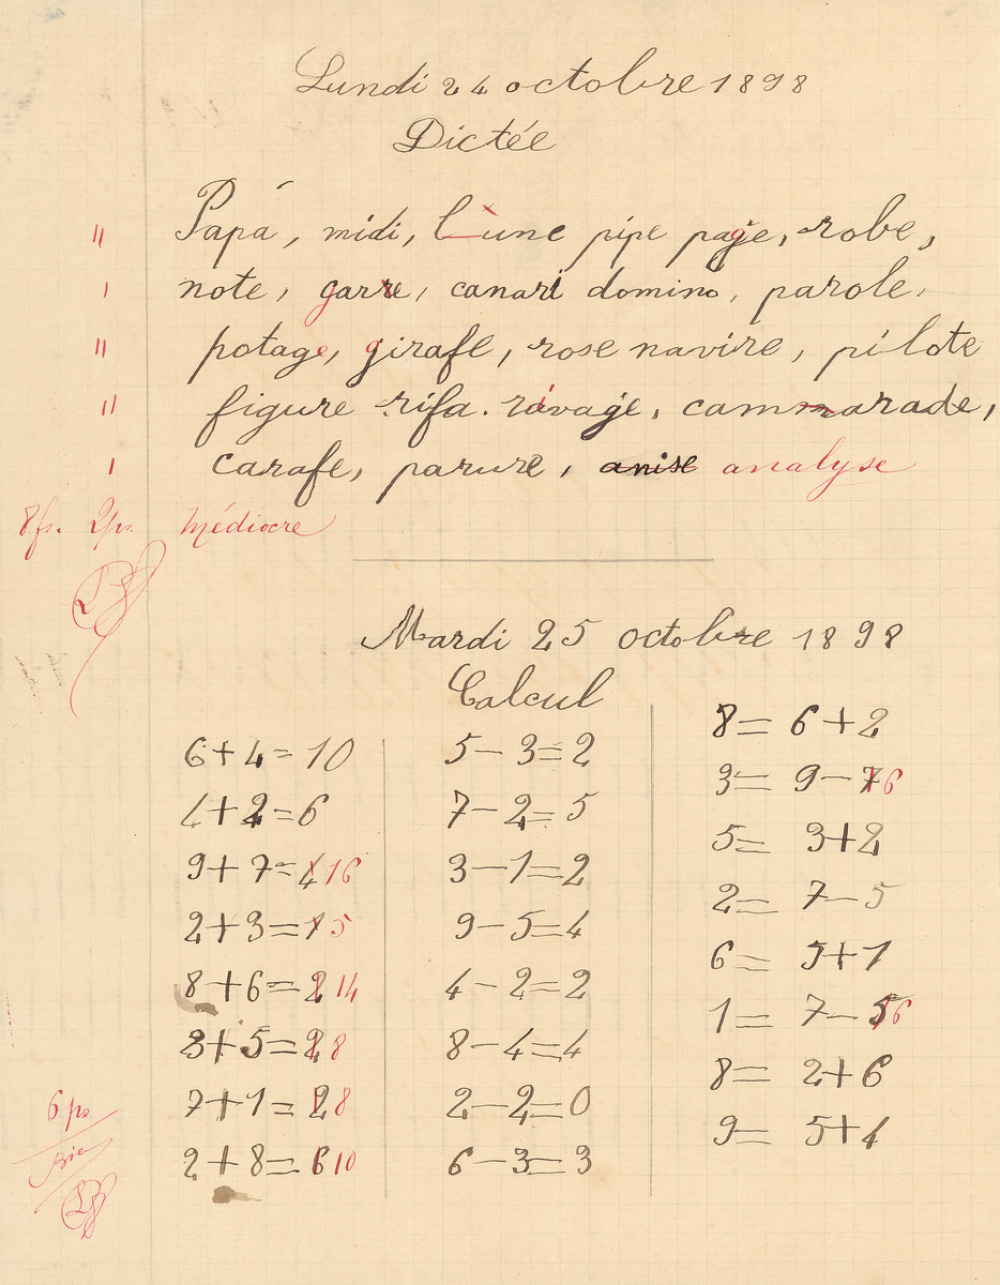 Lundi 24 octobre 1898
Dictée
" Papa, midi, l'une pipe page, robe,
' note, garre, canari domino, parole,
" potage, girafe, rose navire, pilote
" figure rifa. ravage, cammarade,
' carafe, parure, anise analyse
8f. 2ps. Médiocre
Mardi 25 octobre 1898
Calcul
6+4=10
4+2=6
9+7=4 16
2+3=1 5
8+6=2 14
3+5=2 8
7+1=2 8
2+8=6 10
5-3=2
7-2=5
3-1=2
9-5=4
4-2=2
8-4=4
2-2=0
6-3=3
8=6+2
3=9-7 6
5=3+2
2=7-5
6=5+1
1=7-5 6
8=2+6
9=5+4
6ps
Bien